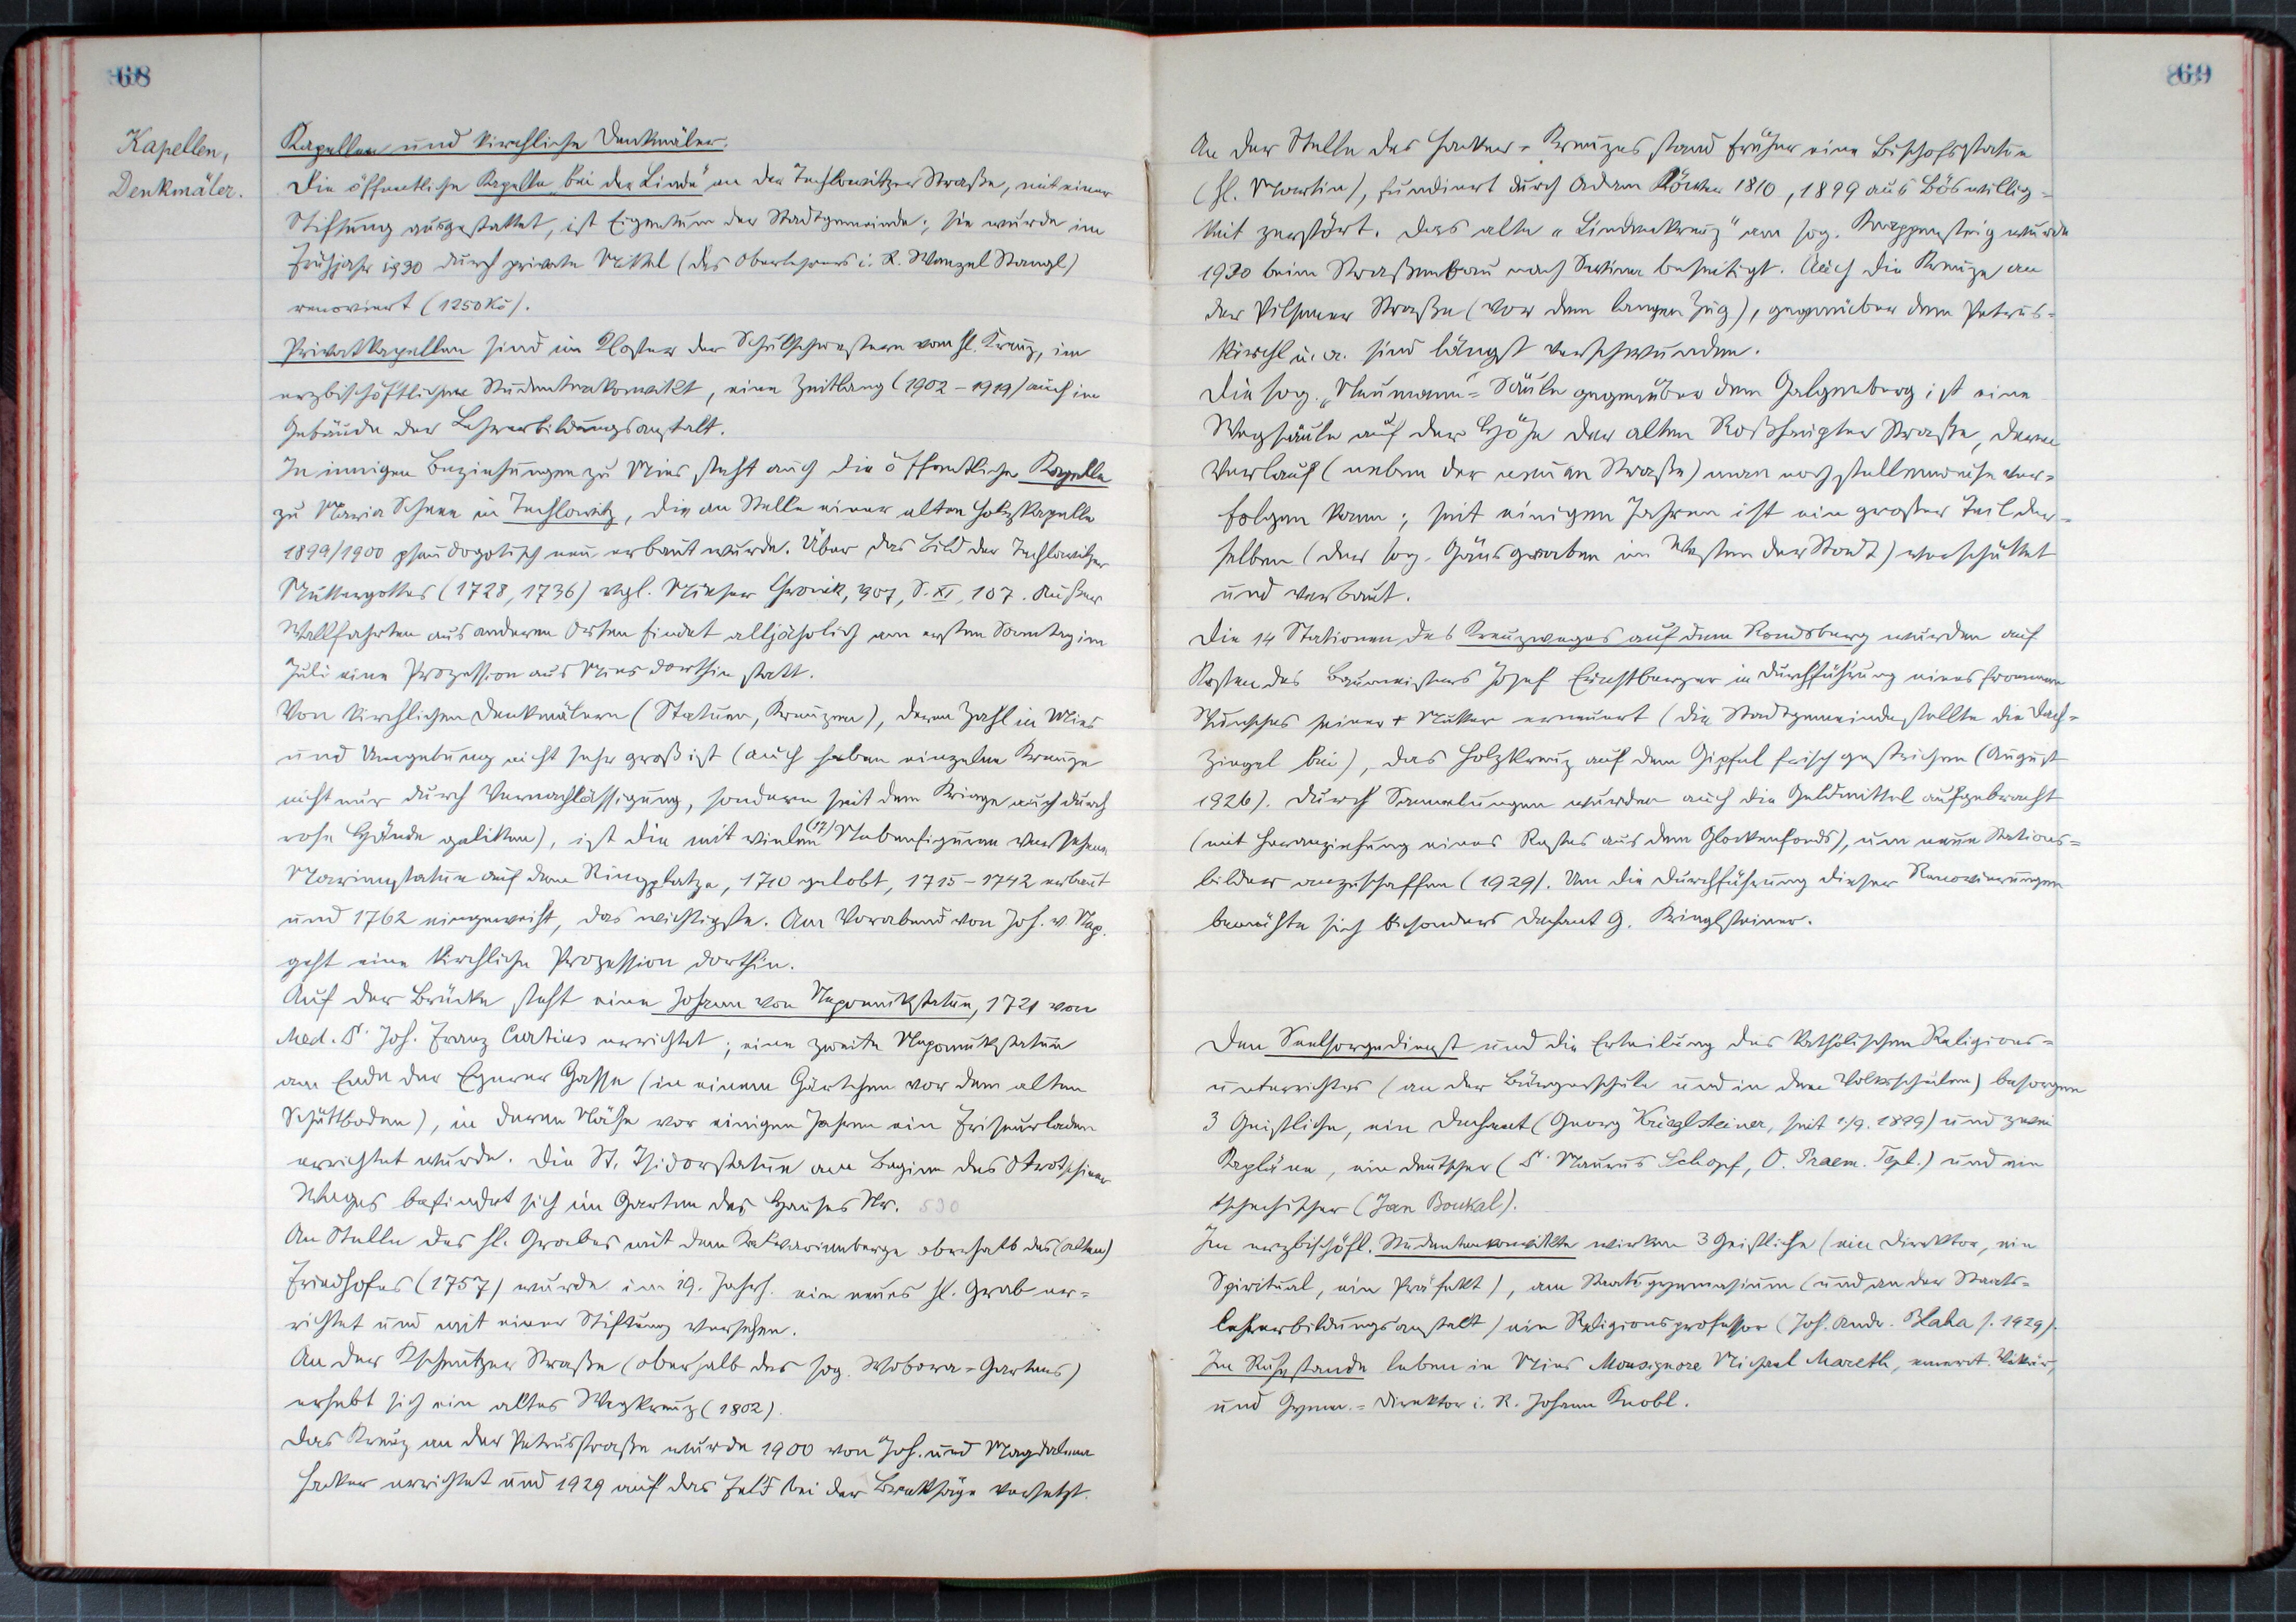 68
Kapellen,
Denkmäler.
Kapellen und kirchliche Denkmäler.
Die öffentliche Kapelle "bei der Linde" an der Techlowitzer Straße, mit einer
Stiftung ausgestattet, ist Eigentum der Stadtgemeinde; sie wurde im
Frühjahr 1930 durch private Mittel (des Oberlehrers i. R. Wenzel Stangl)
renoviert (1250 Kč).
Privatkapellen sind im Kloster der Schulschwestern vom hl. Kreuz, im
erzbischöflichen Studentenkonvikt, eine Zeitlang (1902-1919) auch im
Gebäude der Lehrerbildungsanstalt.
In innigen Beziehungen zu Mies steht auch die öffentliche Kapelle
zu Maria Schnee in Techlowitz, die an Stelle einer alten Holzkapelle
1899/1900 pseudogotisch neu erbaut wurde. Über das Bild der Techlowitzer
Muttergottes (1728, 1736) vgl. Mieser Chronik, 307, S. XI, 107. Außer
Wallfahrten aus anderen Orten findet alljährlich am ersten Sonntag im
Juli eine Prozession aus Mies dorthin statt.
Von kirchlichen Denkmälern (Statuen, Kreuzen), deren Zahl in Mies
und Umgebung nicht sehr groß ist (auch haben einzelne Kreuze
nicht nur durch Vernachlässigung, sondern seit dem Kriege auch durch
rohe Hände gelitten), ist die mit vielen (17) Nebenfiguren versehene
Marienstatue auf dem Ringplatze, 1710 gelobt, 1715-1742 erbaut
und 1762 eingeweiht, das wichtigste. Am Vorabend von Joh. v. Nep.
geht eine kirchliche Prozession dorthin.
Auf der Brücke steht eine Johann von Nepomukstatue, 1721 von
Med. Dr. Joh. Franz Curtius errichtet; eine zweite Nepomukstatue
am Ende der Egerer Gasse (in einem Gärtchen vor dem alten
Schüttboden), in deren Nähe vor einigen Jahren ein Friseurladen
errichtet wurde. Die St. Isidorstatue am Beginn des Otrotschiner
Weges befindet sich im Garten des Hauses Nr. 530
An Stelle des hl. Grabes mit dem Kalvarienberge oberhalb des (alten)
Friedhofes (1757) wurde im 19. Jahrh. ein neues hl. Grab er=
richtet und mit einer Stiftung versehen.
An der Kscheutzer Straße (oberhalb des sog. Wobora=Gartens)
erhebt sich ein altes Wegkreuz (1802).
Das Kreuz an der Petrusstraße wurde 1900 von Joh. und Magdalena
Hacker errichtet und 1929 auf das Feld bei der Brettsäge versetzt.
69
An der Stelle des Hacker=Kreuzes stand früher eine Bischofsstatue
(hl. Martin), fundiert durch Adam 1810, 1899 aus Böswillig=
keit zerstört. Das alte "Lindenkreuz" am sog. Knappensteig wurde
1930 beim Straßenbau nach Swina beseitigt. Auch die Kreuze an
der Pilsener Straße (vor dem langen Zug), gegenüber dem Petrus=
kirchl u. a. sind längst verschwunden.
Die sog. "Neumann"=Säule gegenüber dem Galgenberg ist eine
Wegsäule auf der Höhe der alten Roßhaupter Straße, deren
Verlauf (neben der neuen Straße) man noch stellenweise ver=
folgen kann; seit einigen Jahren ist ein großer Teil der=
selben (der sog. Gänsgraben im Westen der Stadt) verschüttet
und verbaut.
Die 14 Stationen des Kreuzweges auf dem Rondsberg wurden auf
Kosten des Baumeisters Josef Ernstberger in Durchführung eines frommen
Wunsches seiner † Mutter erneuert (die Stadtgemeinde stellte die Dach=
ziegel bei), das Holzkreuz auf dem Gipfel frisch gestrichen (August
1926). Durch Sammlungen wurden auch die Geldmittel aufgebracht
(mit Heranziehung eines Restes aus dem Glockenfonds), um neue Stations=
bilder anzuschaffen (1929). Um die Durchführung dieser Renovierungen
bemühte sich besonders Dechant G. Krieglsteiner.
Den Seelsorgedienst und die Erteilung des katholischen Religions=
unterrichtes (an der Bürgerschule und in den Volksschulen) besorgen
3 Geistliche, ein Dechant (Georg Krieglsteiner, seit 1./9. 1899) und zwei
Kapläne, ein deutscher (P. Maurus Schopf, O. Praem. Tepl.) und ein
tschechischer (Jan Boukal).
Im erzbischöfl. Studentenkonvikte wirken 3 Geistliche (ein Direktor, ein
Spiritual, ein Präfekt), am Staatsgymnasium (und an der Staats=
lehrerbildungsanstalt) ein Religionsprofessor (Joh. Andr. Blaha s. 1929).
Im Ruhestande leben in Mies Monsignore Michael Mareth, emerit. Vikär,
und Gymn.=Direktor i. R. Johann Knobl.